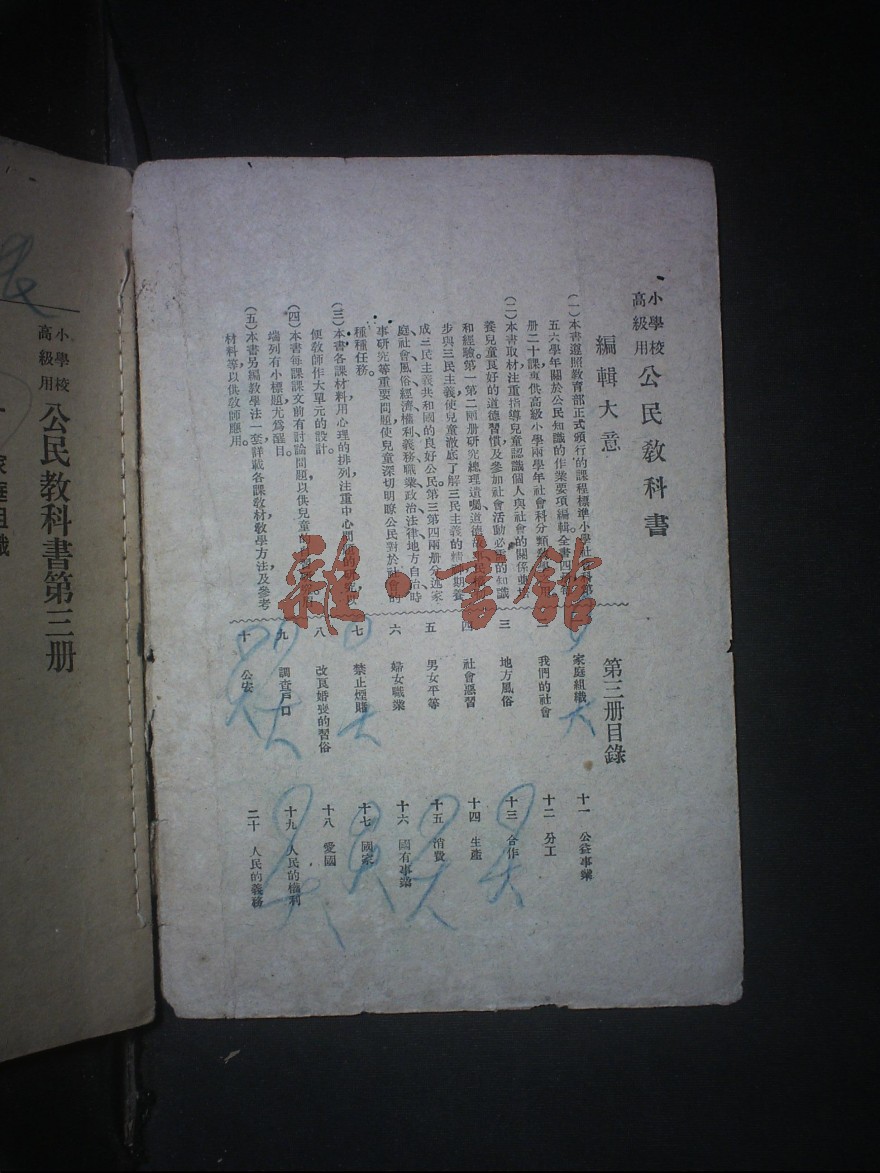 小學校
高級用
公民教科書
編輯大意
(一)本書遵照教育部正式頒行的課程標準小學社
五六學年關於公民知識的作業要項編輯全書四
册二十課專供高級小學兩學年社會科分類教
(二)本書取材注重指導兒童認識個人與社會的關係
養兒童良好的道德習慣及參加社會活動必
的知識
和經驗第一第二兩册研究總理遺囑道德
步與三民主義使兒童澈底了解三民主義的精
期養
成三民主義共和國的良好公民。第三第四兩册分述家
庭、社會、風俗、經濟、權利、義務、職業、政治、法律、地方自治、時
事研究等重要問題使兒童深切明瞭公民對於社會的
種種任務。
(三)本書各課材料用心理的排列注重中心問
便敎師作大單元的設計。
(四)本書每課課文前有討論問題以供兒童的
端列有小標題尤爲醒目。
(五)本書另編教學法一套詳載各課敎材敎學方法及參考
材料等以供敎師應用。
第三册目錄
一 家庭組織
二 我們的社會
三 地方風俗
四 社會惡習
五 男女平等
六 婦女職業
七 禁止煙賭
八 改良婚喪的習俗
九 調查戶口
十 公安
十一 公益事業
十二 分工
十三 合作
十四 生產
十五 消費
十六 國有事業
十七 國家
十八 愛國
十九 人民的權利
二十 人民的義務
小學校
高級用
公民敎科書第三册
家庭組織
雜·書館